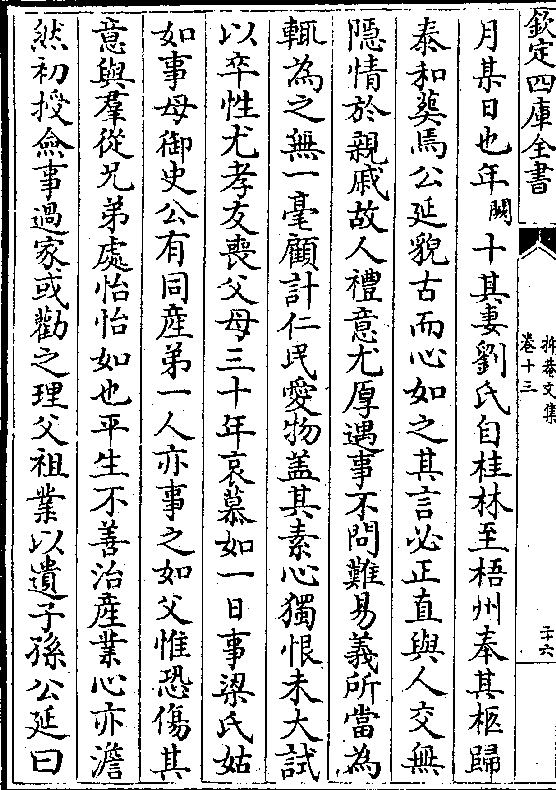 欽定四庫全書
抑菴文集
卷十三
二十六
月某日也年闕十其妻劉氏自桂林至梧州奉其柩歸
泰和葬焉公延貌古而心如之其言必正直與人交無
隠情於親戚故人禮意尤厚遇事不問難易義所當為
輒為之無一毫顧計仁民愛物盖其素心獨恨未大試
以卒性尤孝友喪父母三十年哀慕如一日事梁氏姑
如事母御史公有同産弟一人亦事之如父惟恐傷其
意與羣從兄弟處怡怡如也平生不善治産業心亦澹
然初授僉事過家或勸之理父祖業以遺子孫公延曰